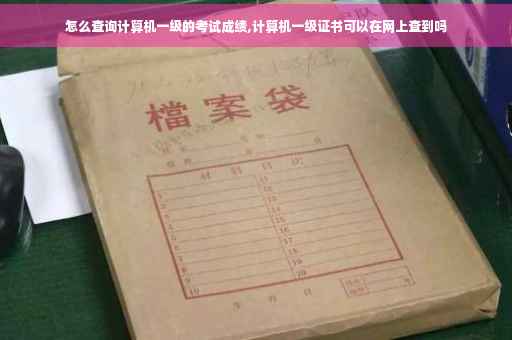 怎么查询计算机一级的考试成绩,计算机一级证书可以在网上查到吗
檔案袋
材料目次
1 11
2 12
3 13
4 14
5 15
6 16
7 17
8 18
9 19
10 20
年 月 日